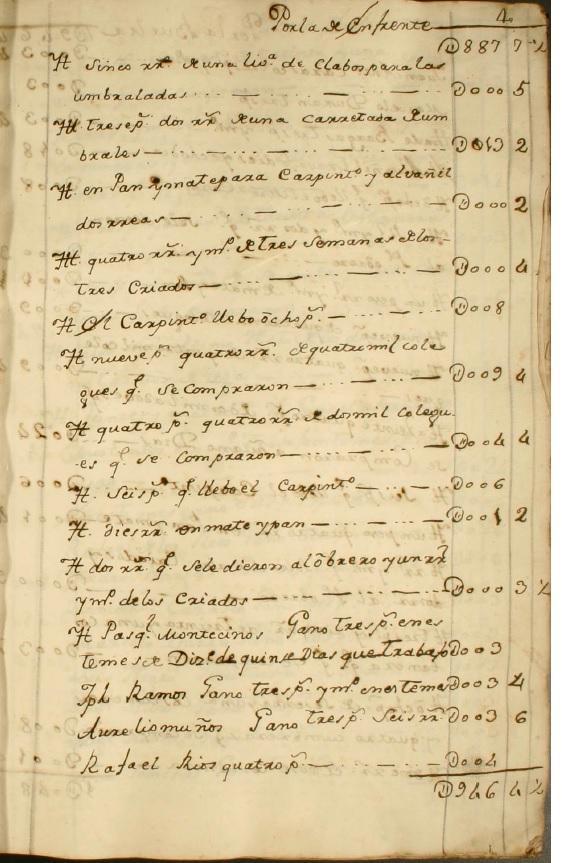 Por la de Enfrente 4
D887 7 ½
It sinco rr.s de una lis.a de Clabos para las
umbraladas D000 5
It tres p.s dos rr.s de una carretada de um
brales D013 2
It en Pan y mate para Carpint.o y alvañil
dos rreas D000 2
It quatro rr.s y m.o de tres semanas de los
tres Criados D000 4
It el Carpint.o llebo ocho p.s D008
It nueve p.s quatro rr.s de quatro mil cole
gues q.e se compraron D009 4
It quatro p.s quatro rr.s de dos mil colegu
es q.e se compraron D004 4
It seis p.s q.e llebo el Carpint.o D006
It dies rr.s en mate y pan D001 2
It dos rr.s q.e se le dieron al obrero y un rr.l
y m.o de los Criados D000 3 ½
It Pasq.l Montecinos Gano tres p.s en es
te mes de Diz.e de quinse Dias que trabajo D003
Jph Ramos Gano tres p.s y m.o en es te mes D003 4
Aurelio muños Gano tres p.s seis rr.s D003 6
Rafael Rios quatro p.s D004
D946 4 ½